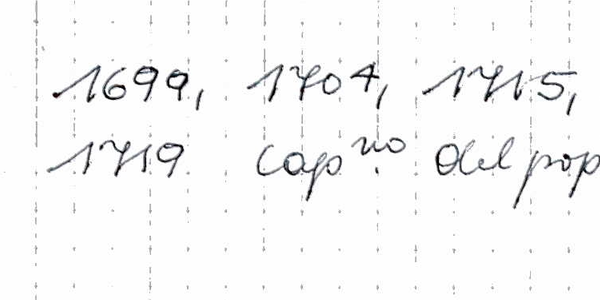 1699, 1704, 1715,
1719 cap.no del pop